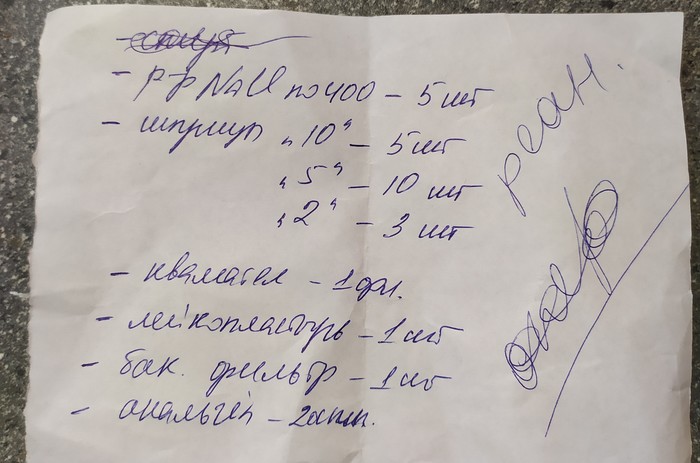 - р-р NaCl по 400 - 5 шт
- шприцы "10" - 5 шт
"5" - 10 шт
"2" - 3 шт
- квамател - 1 фл.
- лейкопластырь - 1 шт
- бак. фильтр - 1 шт
- анальгин - 2 амп.
реан.